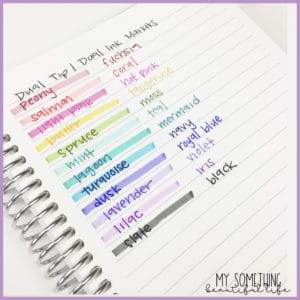 Dual Tip / Dual Ink Markers
peony fuchsia
salmon coral
light pink hot pink
butter tangerine
spruce moss
mint teal
lagoon mermaid
turquoise navy
dusk royal blue
lavender violet
lilac iris
slate black
MY SOMETHING
beautiful life